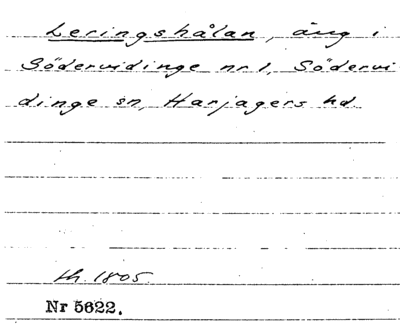 Leringshålan, äng i
Södervidinge nr 1, Södervi
dinge sn, Harjagers hd
th. 1805.
Nr 5622.